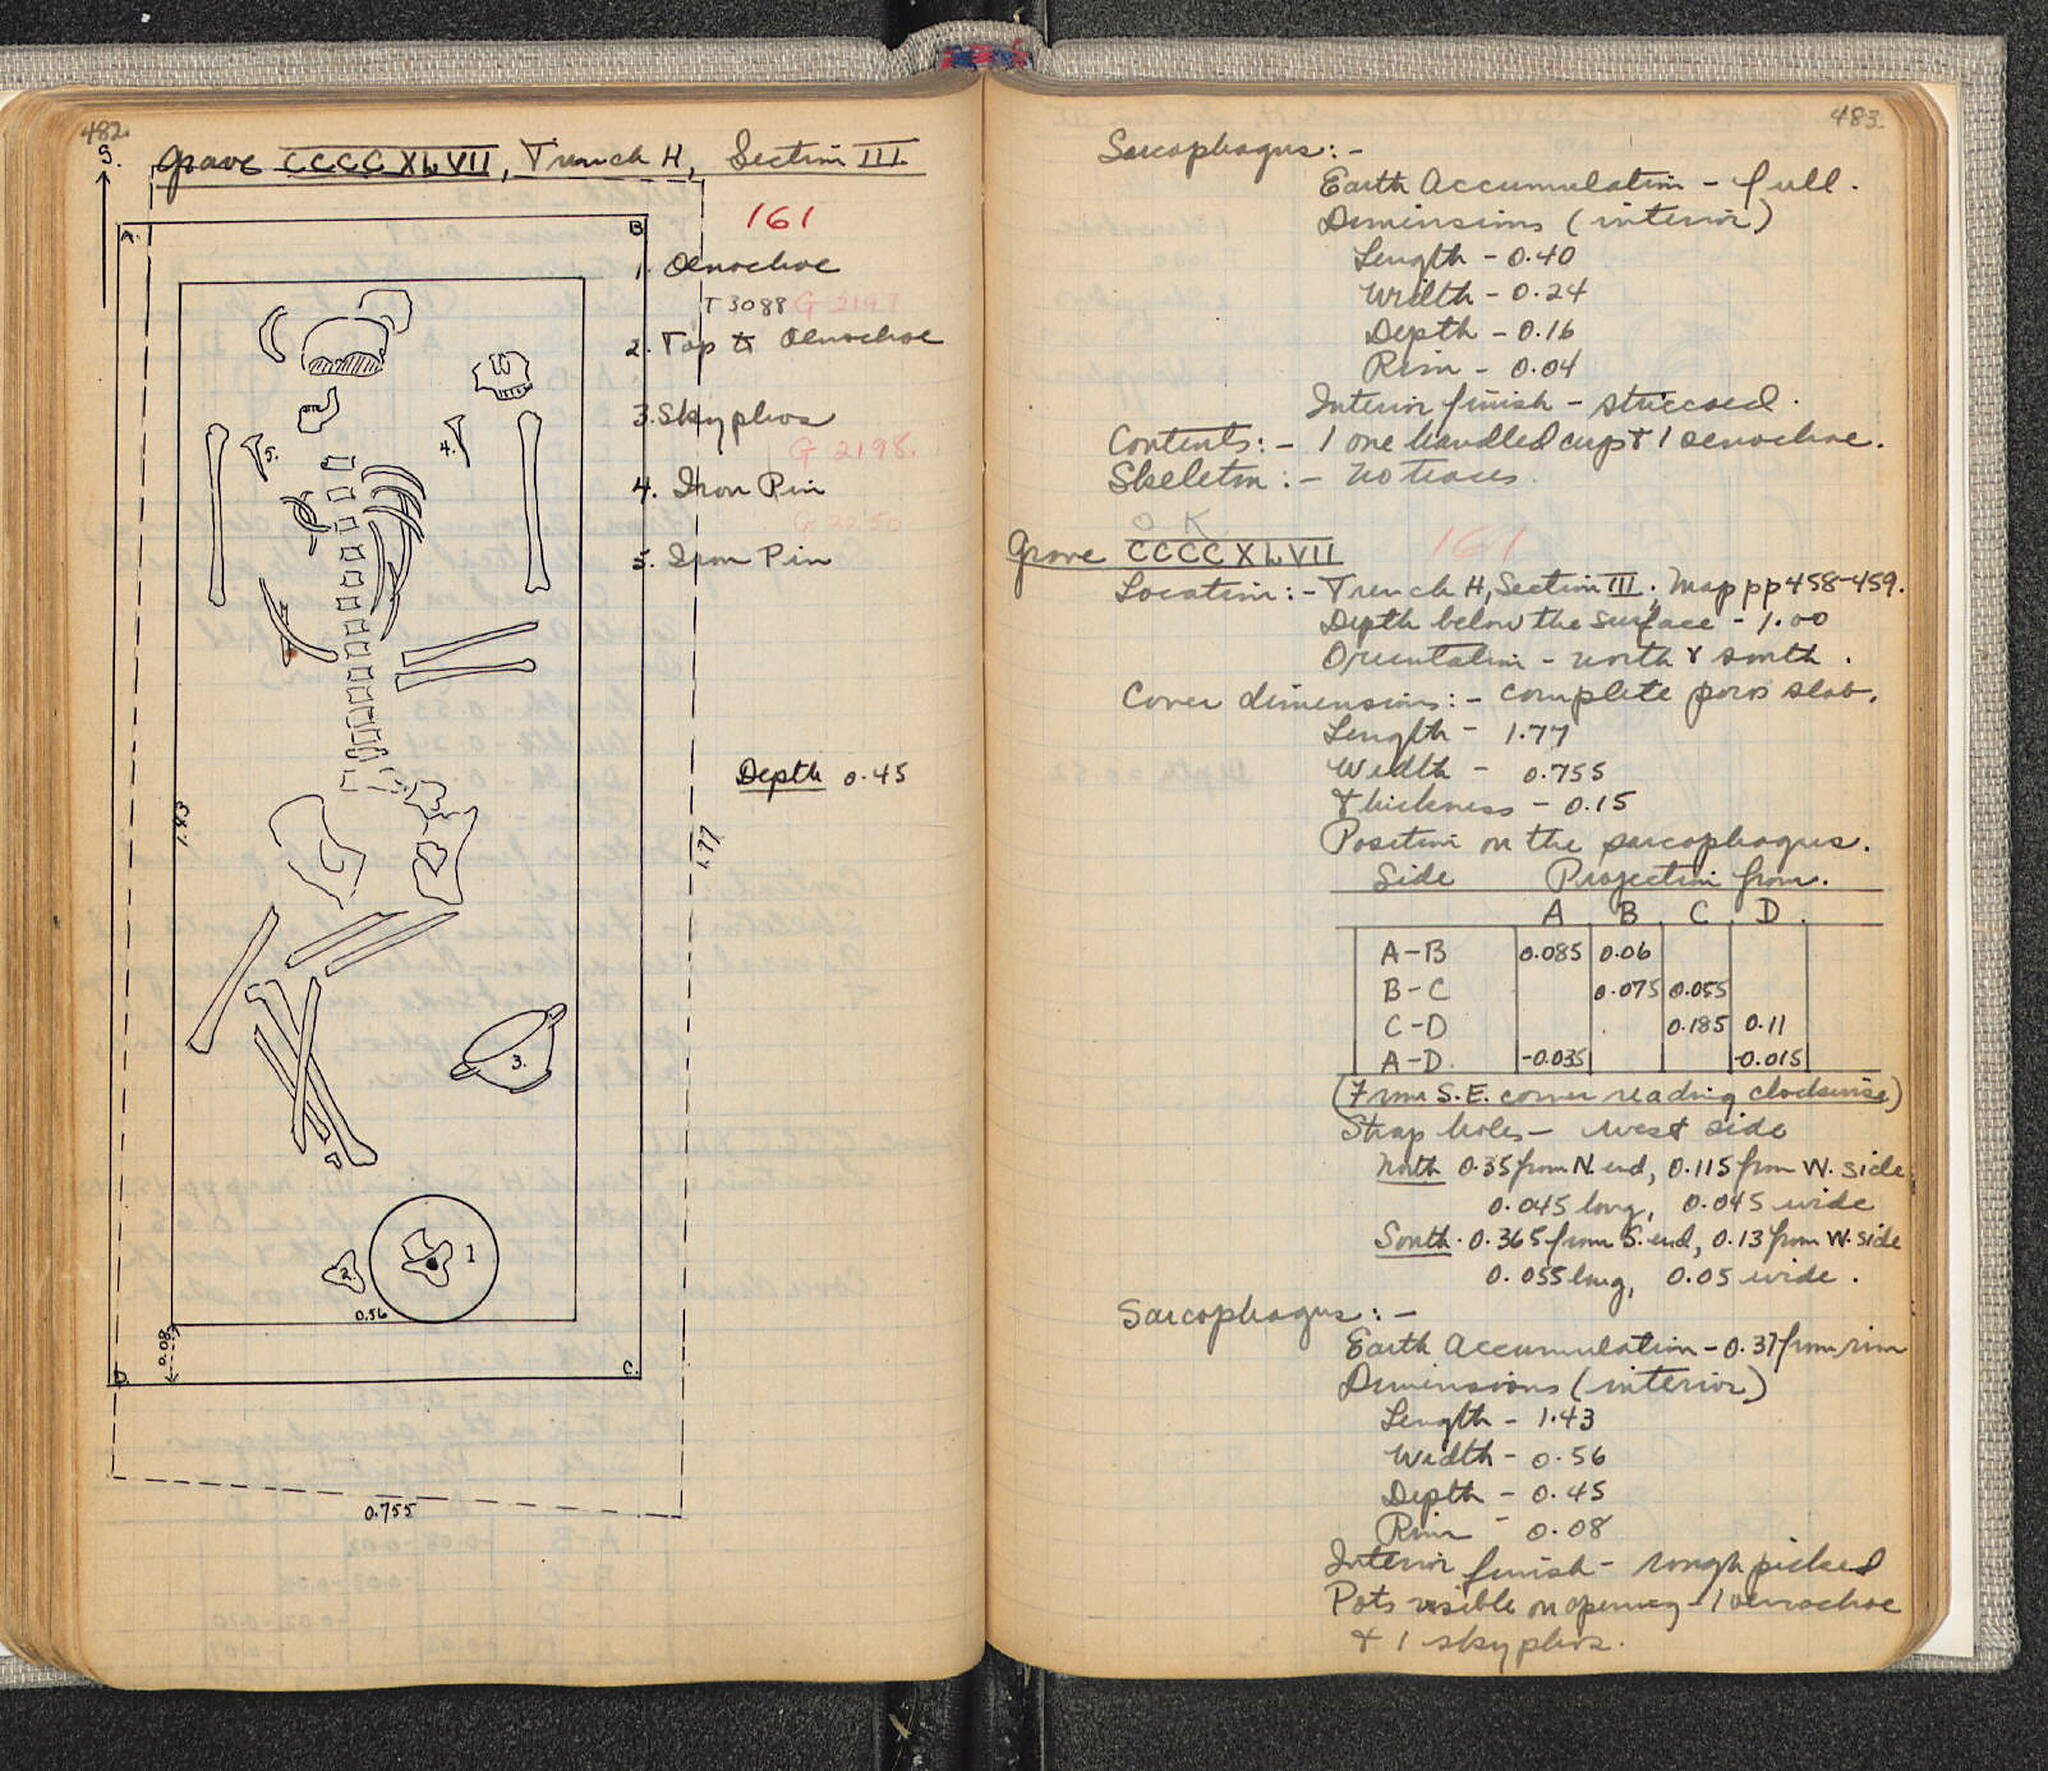 482.
S.
Grave CCCCXLVII, Trench H, Section III.
161
A.
B
1. Oenochoe
T 3088 G 2197
2. Top to Oenochoe
3. Skyphos
G 2198.
4. Iron Pin
G 2250
5. Iron Pin
5.
4.
Depth 0.45
1.83
1.77
3.
2.
1
0.56
0.08
D.
C.
0.755
483.
Sarcophagus:-
Earth Accumulation - full.
Dimensions (interior)
Length - 0.40
Width - 0.24
Depth - 0.16
Rim - 0.04
Interior finish - stuccoed.
Contents:- 1 one handled cup & 1 oenochoe.
Skeleton:- no traces.
O K
Grave CCCCXLVII 161
Location:- Trench H, Section III; Map pp 458-459.
Depth below the surface - 1.00
Orientation - north & south.
Cover dimensions:- complete poros slab.
Length - 1.77
Width - 0.755
Thickness - 0.15
Position on the sarcophagus.
Side Projection from.
A B C D.
A-B 0.085 0.06
B-C 0.075 0.055
C-D 0.185 0.11
A-D. -0.035 -0.015
(From S.E. corner reading clockwise)
Strap holes - west side
North 0.35 from N. end, 0.115 from W. side
0.045 long, 0.045 wide
South. 0.365 from S. end, 0.13 from W. side
0.055 long, 0.05 wide.
Sarcophagus:-
Earth Accumulation - 0.37 from rim
Dimensions (interior)
Length - 1.43
Width - 0.56
Depth - 0.45
Rim - 0.08
Interior finish - rough picked
Pots visible on opening - 1 oenochoe
& 1 skyphos.